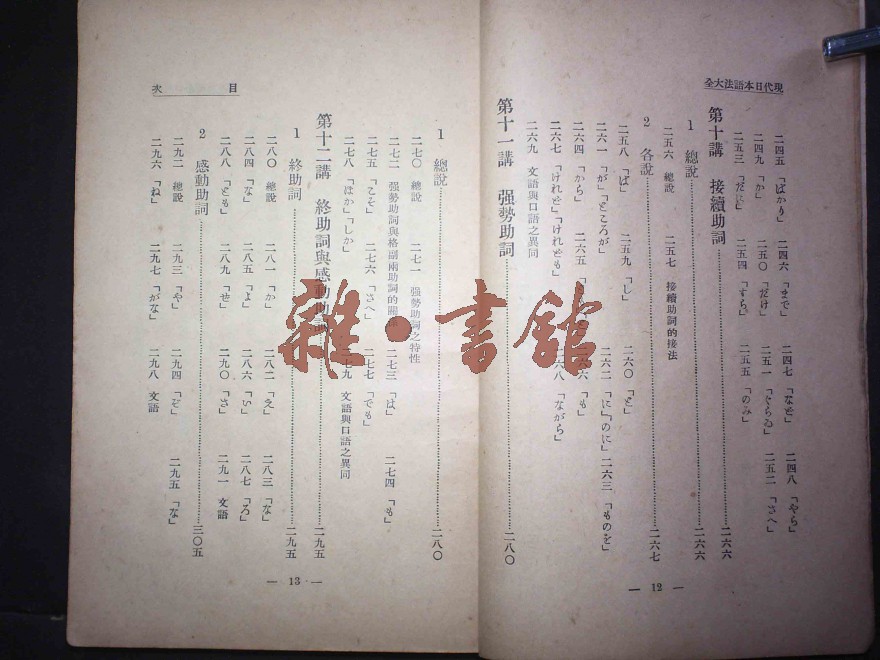 現代日本語法大全
二四五「ばかり」 二四六「まで」 二四七「など」 二四八「やら」
二四九「か」 二五〇「だけ」 二五一「ぐらゐ」 二五二「さへ」
二五三「だに」 二五四「すら」 二五五「のみ」
第十講 接續助詞 二六六
1 總說 二六六
二五六 總說 二五七 接續助詞的接法
2 各說 二六七
二五八「ば」 二五九「し」 二六〇「と」
二六一「が」「ところが」 二六二「に」「のに」 二六三「ものを」
二六四「から」 二六五「 「も」
二六七「けれど」「けれども」 二六八「ながら」
二六九 文語與口語之異同
第十一講 强勢助詞 二八〇
— 12 —
目次
1 總說 二八〇
二七〇 總說 二七一 强勢助詞之特性
二七二 强勢助詞與格副兩助詞的關 二七三「は」 二七四「も」
二七五「こそ」 二七六「さへ」 二七七「でも」
二七八「ほか」「しか」 二七九 文語與口語之異同
第十二講 終助詞與感動助詞 二九五
1 終助詞 二九五
二八〇 總說 二八一「か」 二八二「え」 二八三「な」
二八四「な」 二八五「よ」 二八六「い」 二八七「ろ」
二八八「とも」 二八九「ぜ」 二九〇「さ」 二九一 文語
2 感動助詞 三〇五
二九二 總說 二九三「や」 二九四「ぞ」 二九五「な」
二九六「ね」 二九七「がな」 二九八 文語
— 13 —
雜·書館